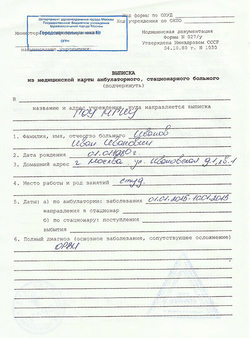 Код формы по ОКУД
Код учреждения по ОКПО
Департамент здравоохранения города Москвы
Государственное бюджетное учреждение
здравоохранения города Москвы
Медицинская документация
Форма N 027/у
Утверждена Минздравом СССР
04.10.80 г. N 1030
наименование учреждения
ВЫПИСКА
из медицинской карты амбулаторного, стационарного больного
(подчеркнуть)
В
название и адрес учреждения, куда направляется выписка
1. Фамилия, имя, отчество больного Иванов
Иван Иванович
2. Дата рождения
3. Домашний адрес г. Москва ул. Ивановская д.1 кв.1
4. Место работы и род занятий студ.
5. Даты: а) по амбулатории: заболевания
направления в стационар
б) по стационару: поступления
выбытия
6. Полный диагноз (основное заболевание, сопутствующее осложнение)
ОРВИ